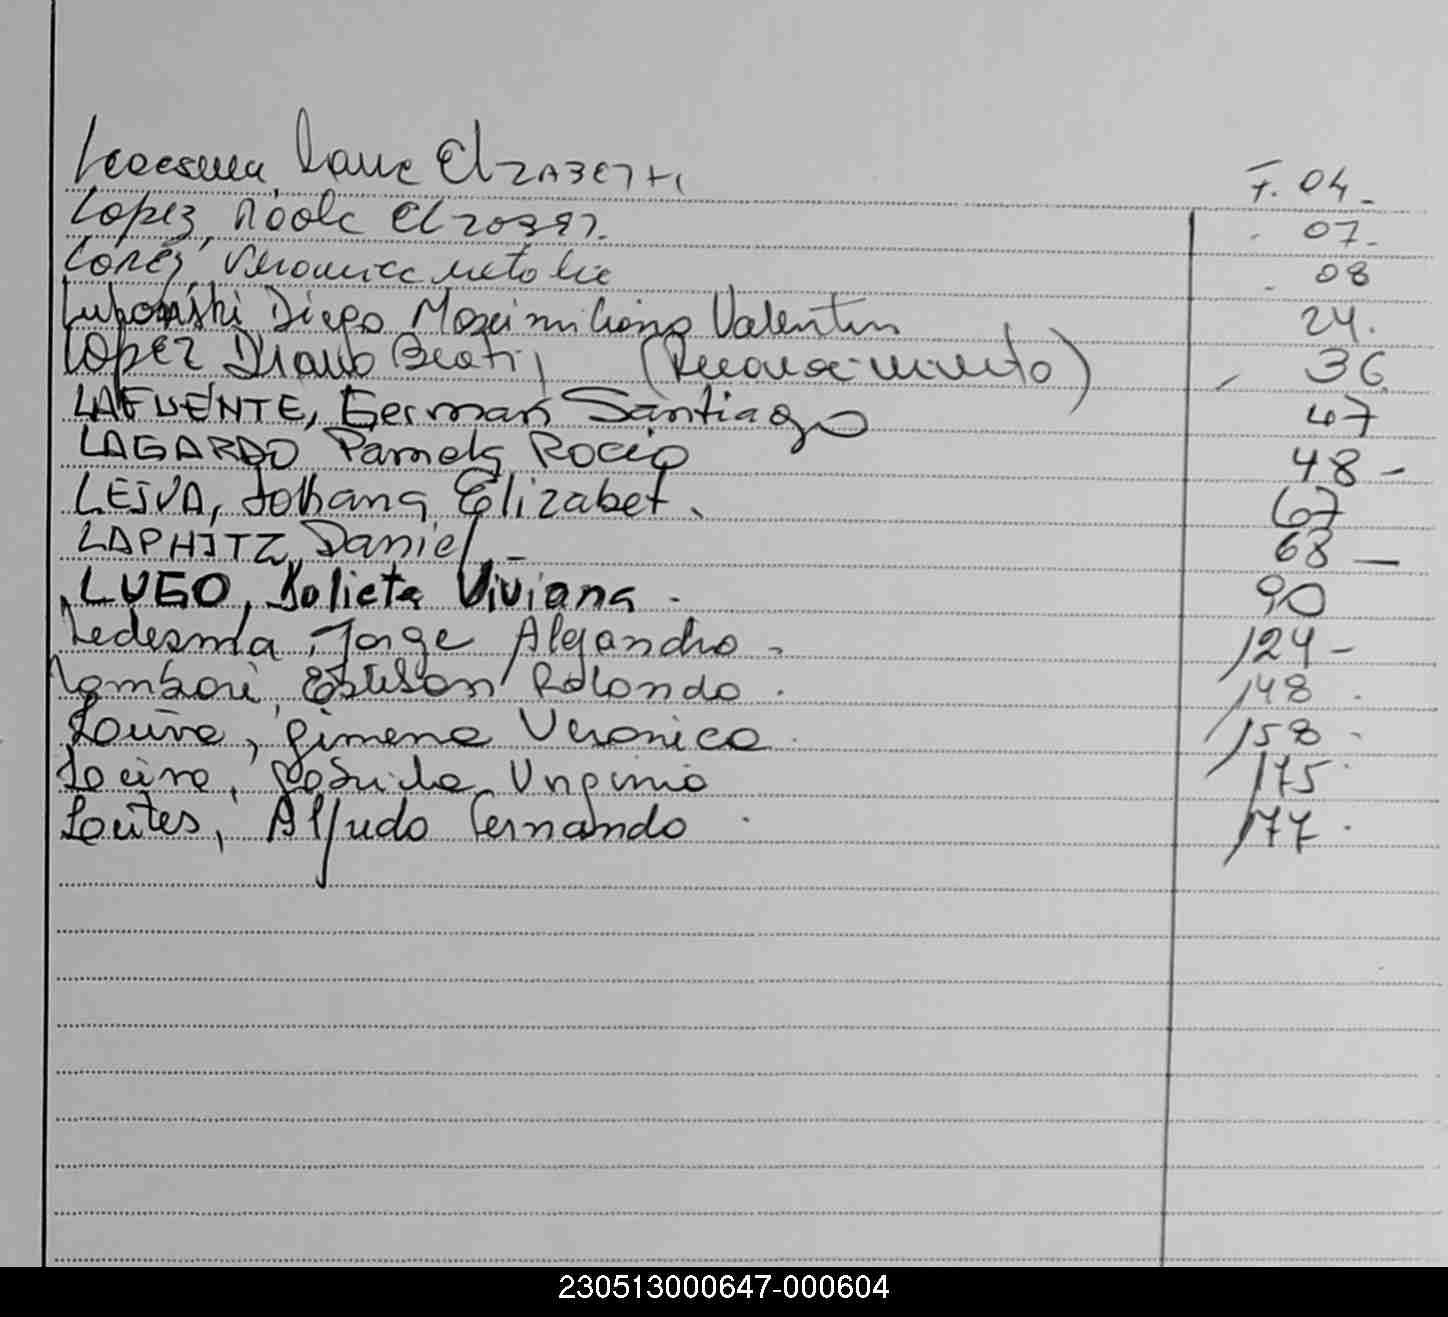 Ledesma, Elizabeth F. 04.
Lopez, 07.
Lopez, Veronica Natalia 08
Diego Maximiliano Valentin 24.
Lopez Beatriz (Reconocimiento) 36
LAFUENTE, German Santiago 47
LAGARDO Pamela Rocio 48 -
LEIVA, Johana Elizabet. 67
LAPHITZ, Daniel. - 68 -
LUGO, Julieta Viviana. 90
Ledesma, Jorge Alejandro - 124 -
Rolondo. 148.
Gimena Veronica. 158 -
Virginia 175
Alfredo Fernando. 177.
230513000647-000604